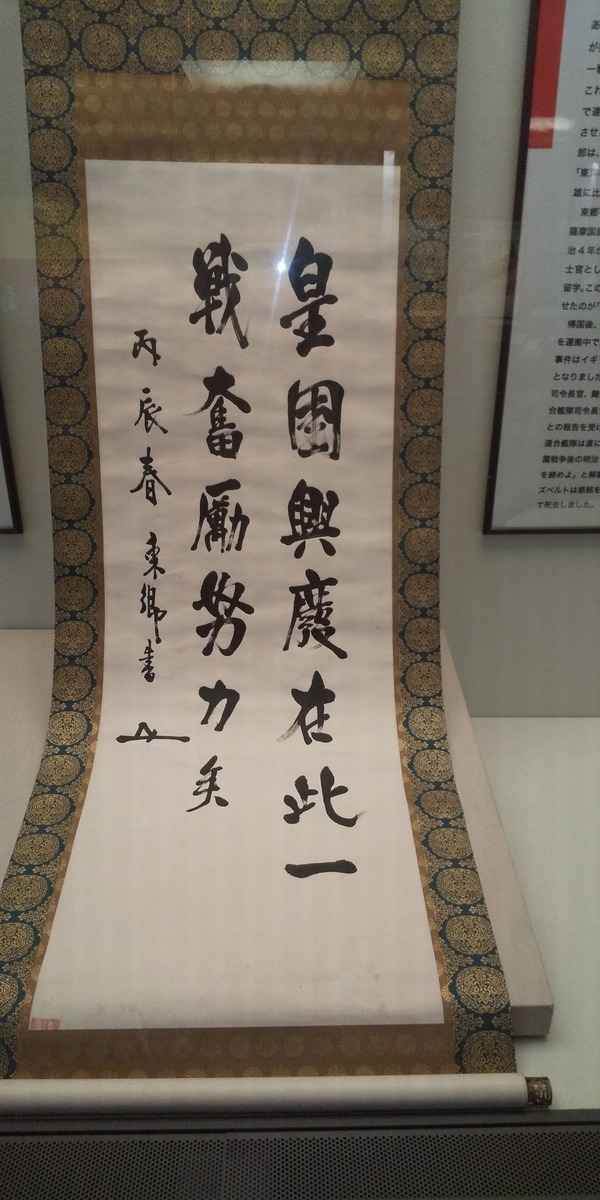 皇國興廢在此一
戦奮勵努力矣
丙辰春 東郷書
あ
が
一
これ
で連
させ
郎は、
「東洋
雄に比
東郷
薩摩国
治4年
士官とし
留学。この
せたのが「
帰国後、
を運搬中で
事件はイギ
となりました
司令長官、舞
合艦隊司令長
との報告を受け
連合艦隊は直に
露戦争後の明治
を締めよ」と解
ズベルトは感銘を
て死去しました。